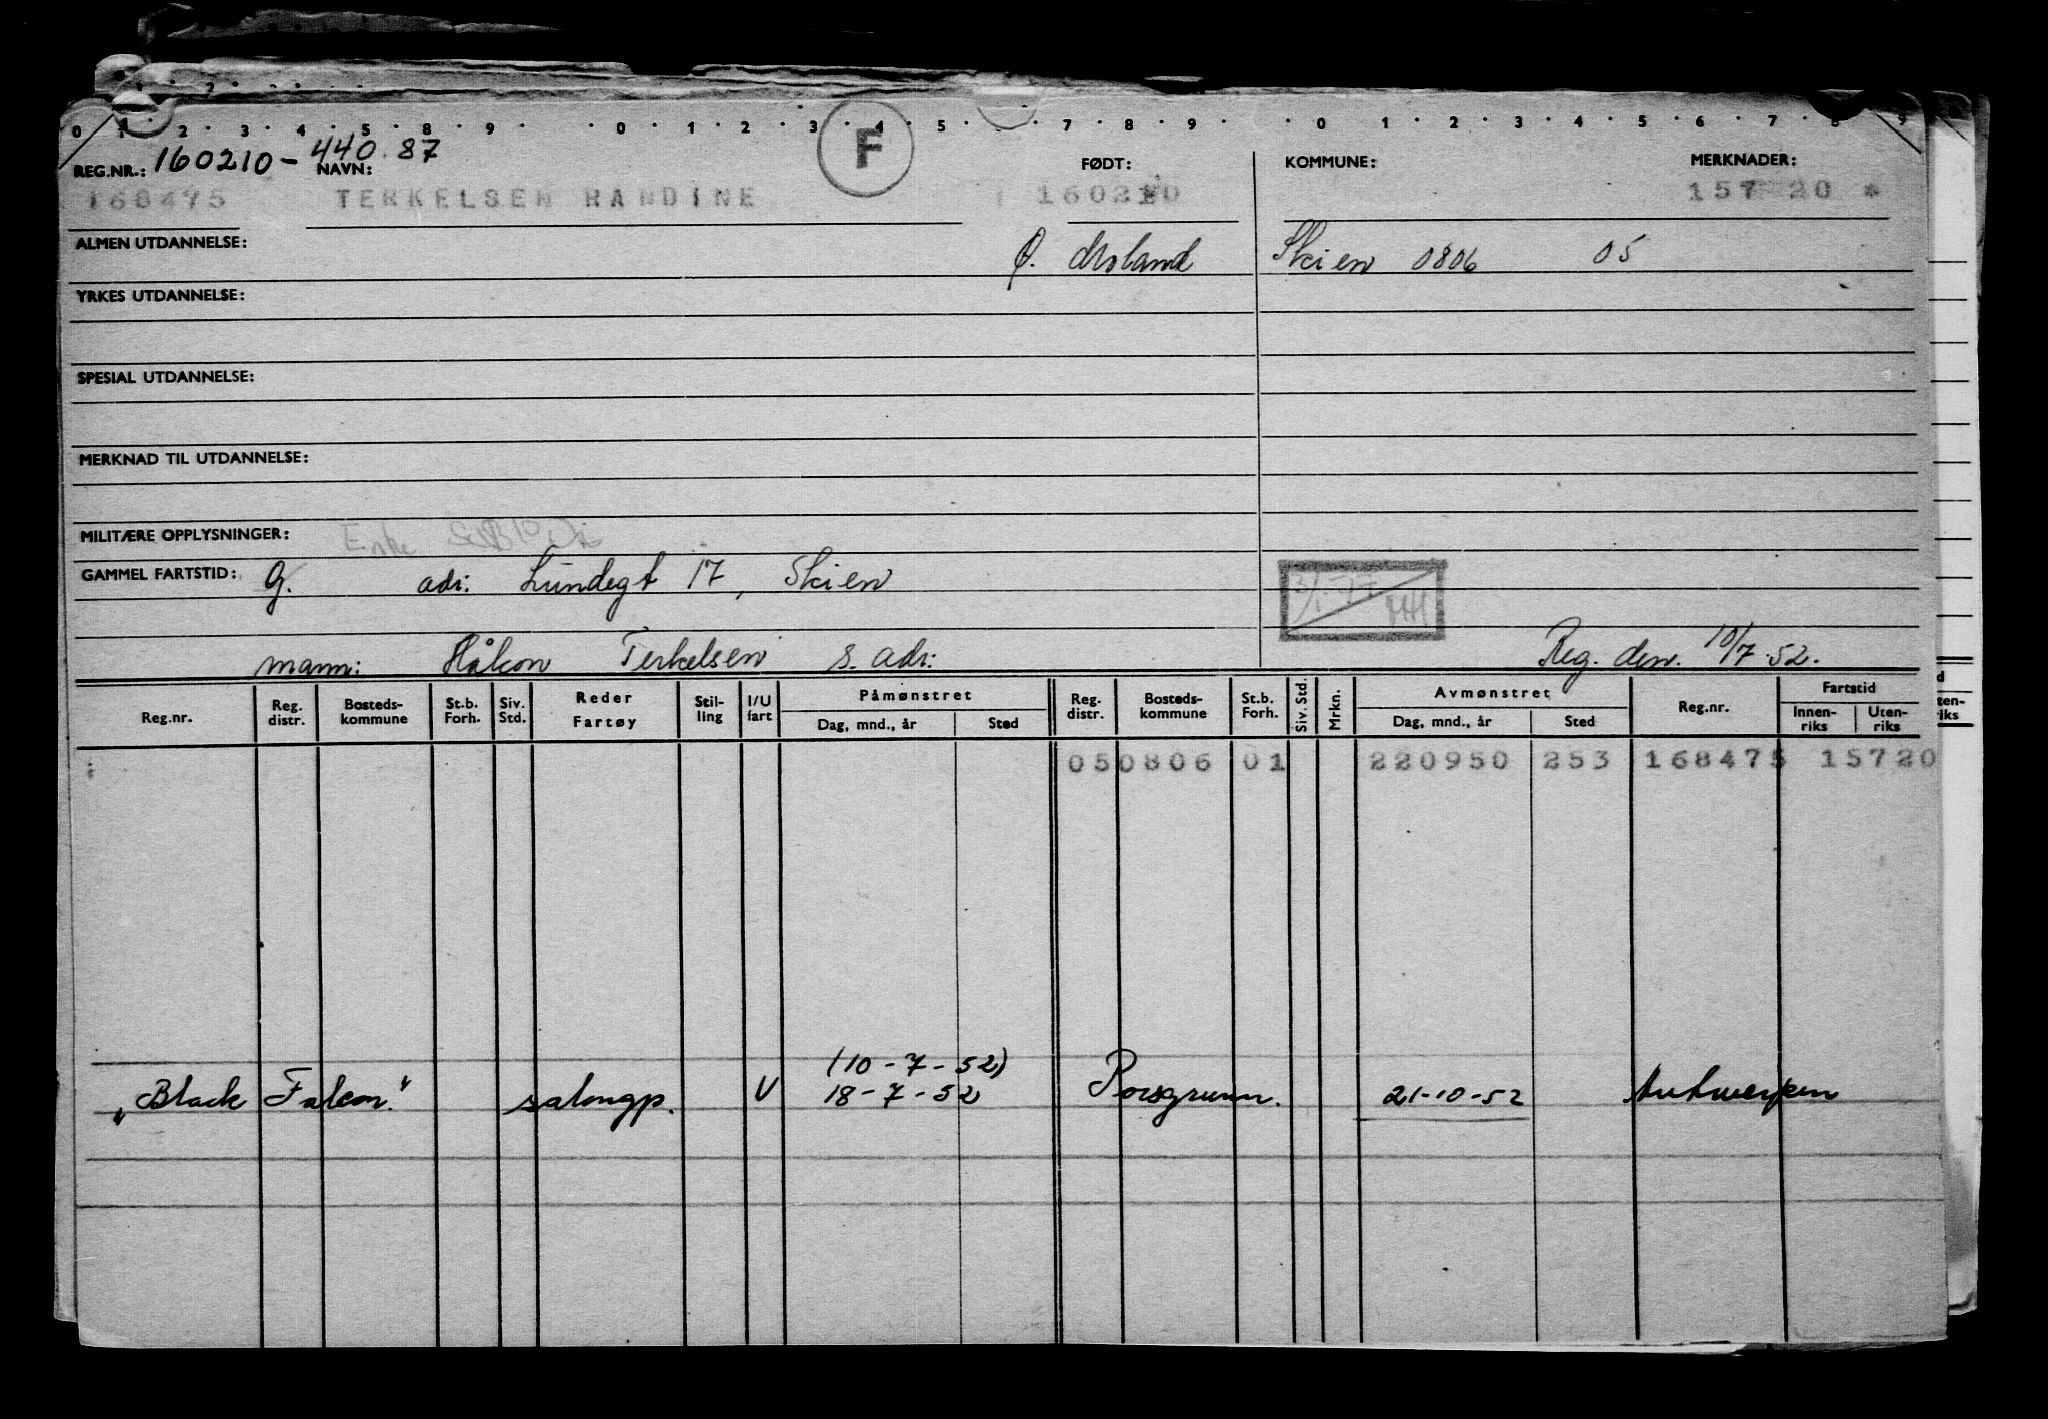 0 1 2 3 4 5 8 9 0 1 2 3 4 5 7 8 9 0 1 2 3 4 5 6 7 8 9
REG.NR.: 160210-440.87 NAVN: F FØDT: KOMMUNE: MERKNADER:
168475 TERKELSEN RANDINE 160210 157 20 *
ALMEN UTDANNELSE: Ø. Moland Skien 0806 05
YRKES UTDANNELSE:
SPESIAL UTDANNELSE:
MERKNAD TIL UTDANNELSE:
MILITÆRE OPPLYSNINGER: Enke
GAMMEL FARTSTID: G. adr: Lundegt 17, Skien
mann: Håkon Terkelsen s. adr: Reg. den. 10/7.52.
Reg.nr. Reg. distr. Bosteds-kommune St.b. Forh. Siv. Std. Reder Fartøy Stil-ling I/U fart Påmønstret Dag, mnd., år Sted Reg. distr. Bosteds-kommune St.b. Forh. Siv. Std. Mrkn. Avmønstret Dag, mnd., år Sted Reg.nr. Fartstid Innen-riks Uten-riks
050806 01 220950 253 168475 15720
(10-7-52)
„Black Falcon." salongp. U 18-7-52 Porsgrunn. 21-10-52 Antwerpen